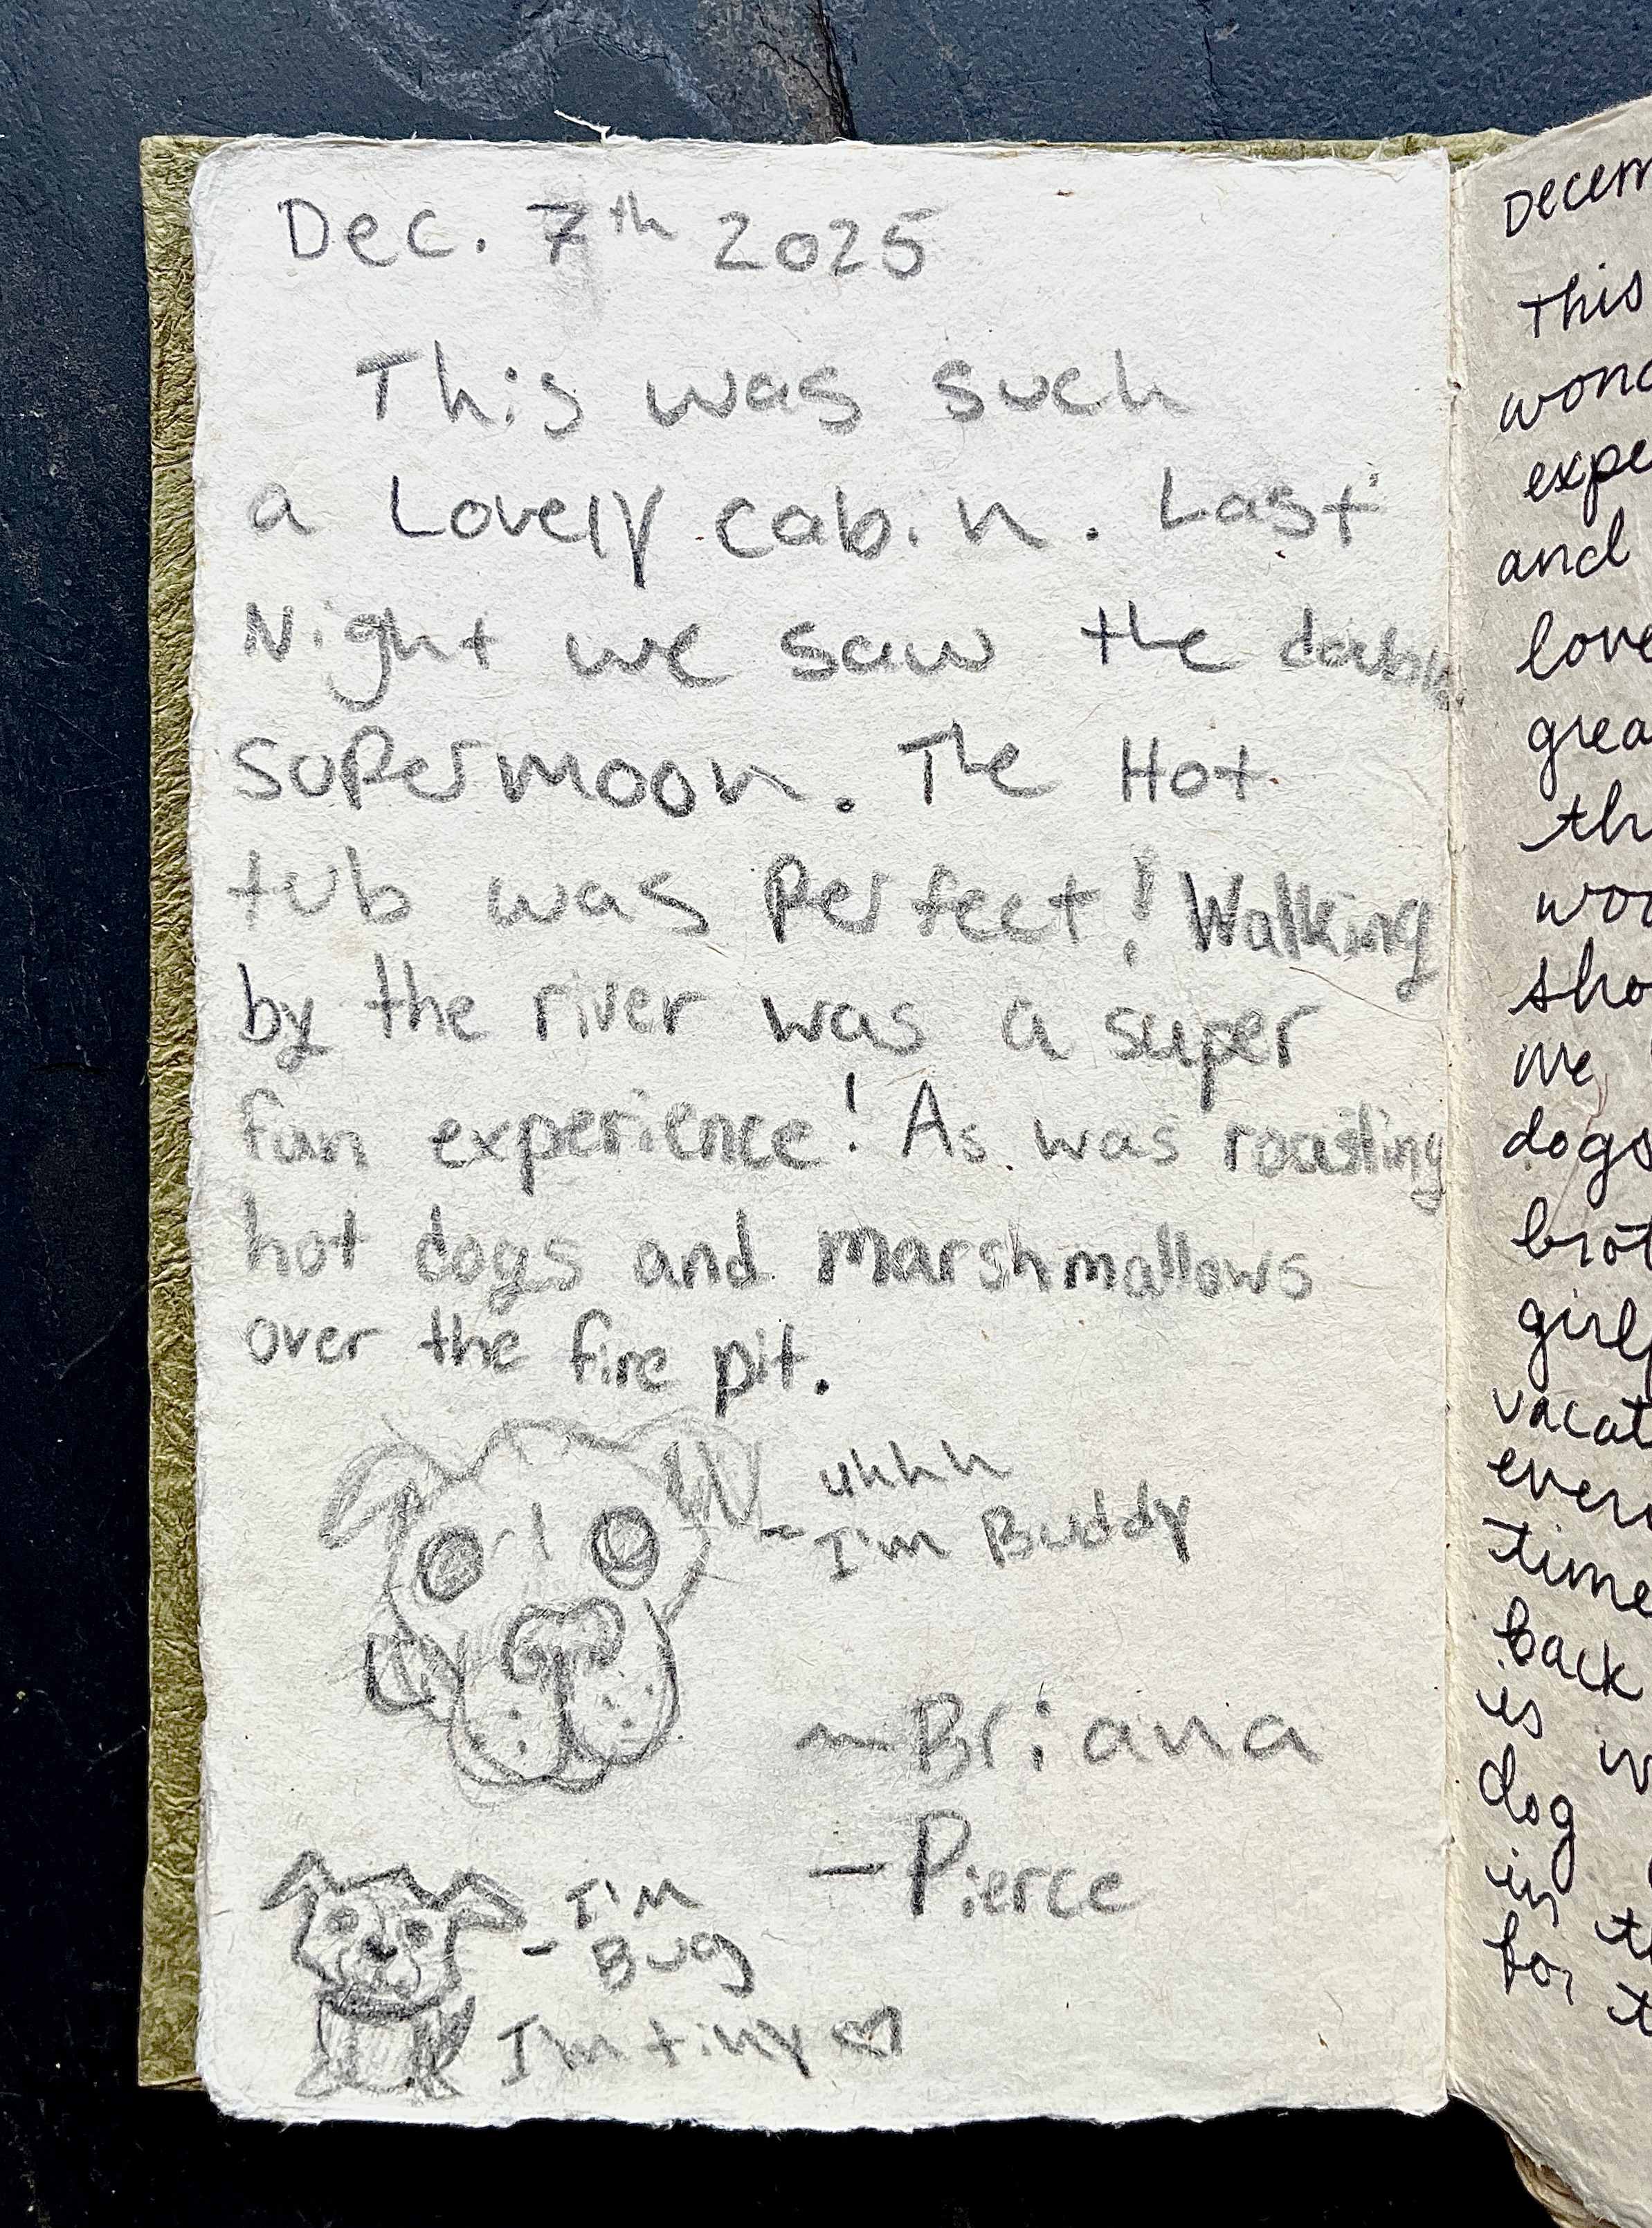 Dec. 7th 2025
This was such
a Lovely cabin. Last
Night we saw the double
supermoon. The Hot
tub was Perfect! Walking
by the river was a super
fun experience! As was roasting
hot dogs and marshmallows
over the fire pit.
uhhh
- I'm Buddy
~ Briana
- Pierce
- I'm
Bug
I'm tiny ♡
Decem
This
wond
expe
and
love
grea
th
woo
sho
We
dogs
brot
girlf
vacat
every
time
back
is w
dog
in th
for t